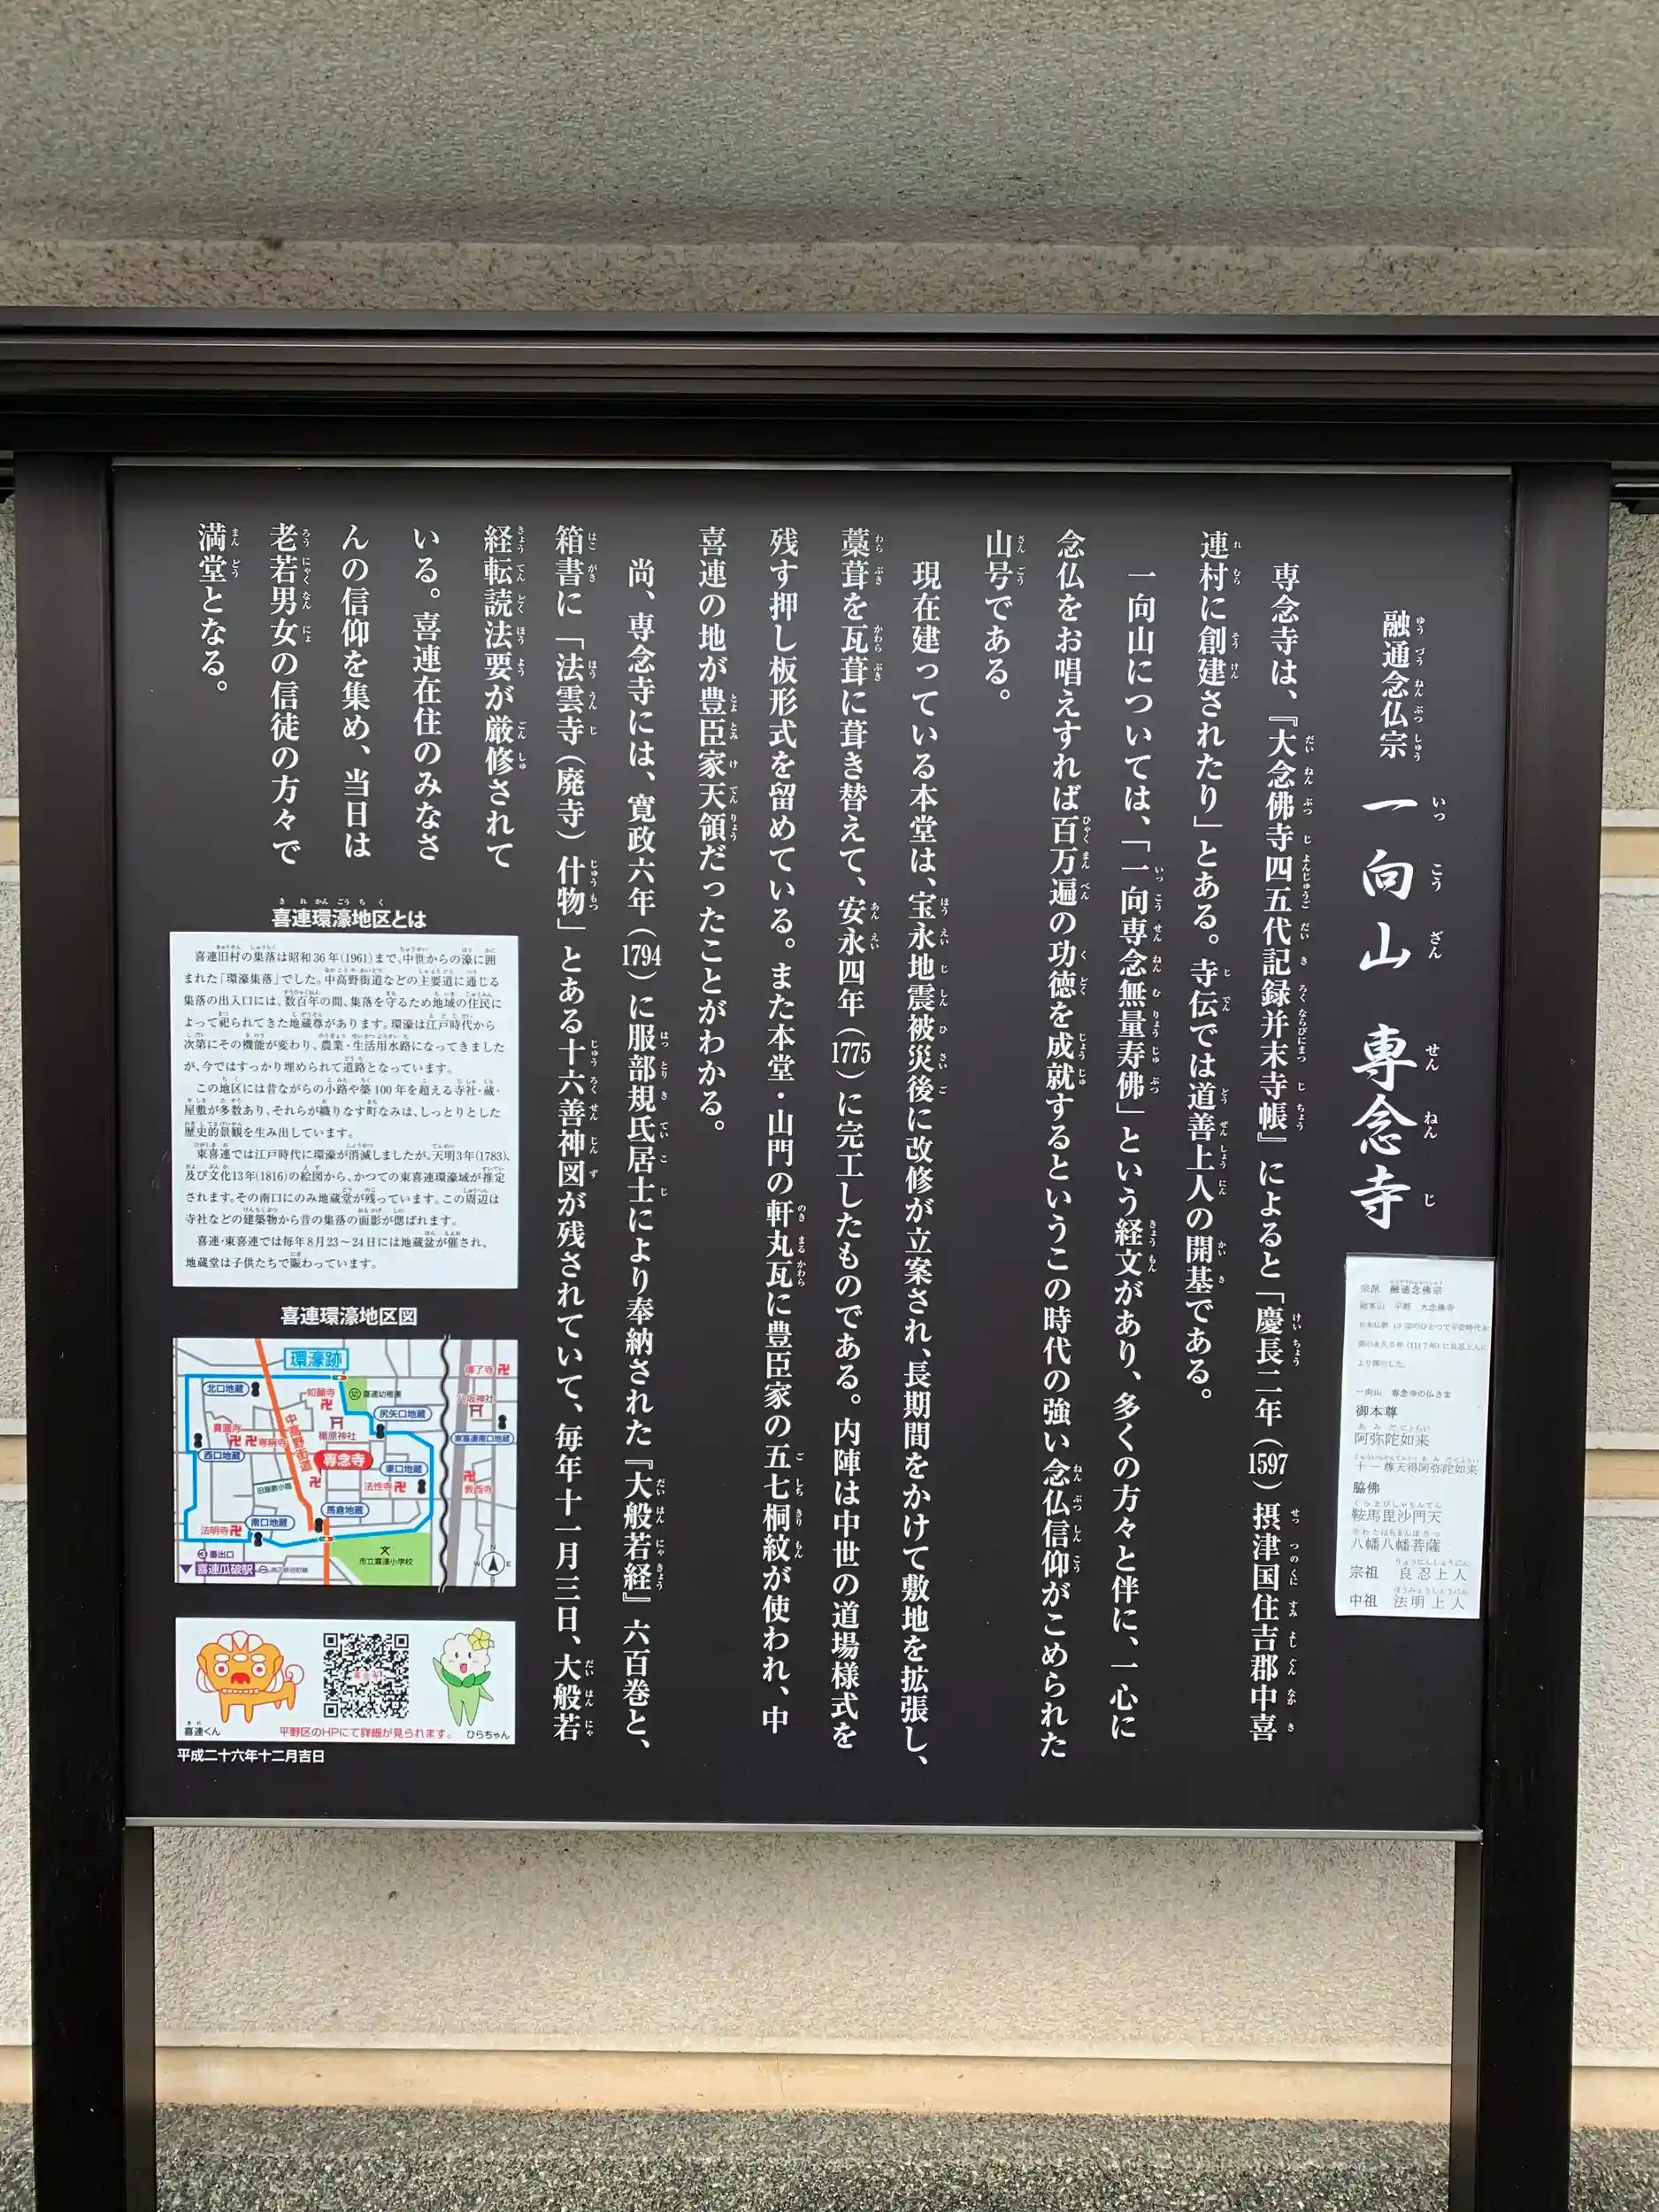 融通念仏宗 一向山 専念寺
専念寺は、『大念佛寺四五代記録并末寺帳』によると「慶長二年（1597）摂津国住吉郡中喜
連村に創建されたり」とある。寺伝では道善上人の開基である。
一向山については、「一向専念無量寿佛」という経文があり、多くの方々と伴に、一心に
念仏をお唱えすれば百万遍の功徳を成就するというこの時代の強い念仏信仰がこめられた
山号である。
現在建っている本堂は、宝永地震被災後に改修が立案され、長期間をかけて敷地を拡張し、
藁葺を瓦葺に葺き替えて、安永四年（1775）に完工したものである。内陣は中世の道場様式を
残す押し板形式を留めている。また本堂・山門の軒丸瓦に豊臣家の五七桐紋が使われ、中
喜連の地が豊臣家天領だったことがわかる。
尚、専念寺には、寛政六年（1794）に服部規氏居士により奉納された『大般若経』六百巻と、
箱書に「法雲寺（廃寺）什物」とある十六善神図が残されていて、毎年十一月三日、大般若
経転読法要が厳修されて
いる。喜連在住のみなさ
んの信仰を集め、当日は
老若男女の信徒の方々で
満堂となる。
宗派 融通念佛宗
総本山 平野 大念佛寺
日本仏教 13宗のひとつで平安時代末
期の永久5年(1117年)に良忍上人に
より開宗した。
一向山 専念寺の仏さま
御本尊
阿弥陀如来
十一尊天得阿弥陀如来
脇佛
鞍馬毘沙門天
八幡八幡菩薩
宗祖 良忍上人
中祖 法明上人
喜連環濠地区とは
喜連旧村の集落は昭和36年(1961)まで、中世からの濠に囲
まれた「環濠集落」でした。中高野街道などの主要道に通じる
集落の出入口には、数百年の間、集落を守るため地域の住民に
よって祀られてきた地蔵尊があります。環濠は江戸時代から
次第にその機能が変わり、農業・生活用水路になってきました
が、今ではすっかり埋められて道路となっています。
この地区には昔ながらの小路や築100年を超える寺社・蔵・
屋敷が多数あり、それらが織りなす町なみは、しっとりとした
歴史的景観を生み出しています。
東喜連では江戸時代に環濠が消滅しましたが、天明3年(1783)、
及び文化13年(1816)の絵図から、かつての東喜連環濠域が推定
されます。その南口にのみ地蔵堂が残っています。この周辺は
寺社などの建築物から昔の集落の面影が偲ばれます。
喜連・東喜連では毎年8月23～24日には地蔵盆が催され、
地蔵堂は子供たちで賑わっています。
喜連環濠地区図
環濠跡
北口地蔵
如願寺
喜連幼稚園
尻矢口地蔵
八坂神社
楯原神社
中高野街道
専称寺
西口地蔵
専念寺
東口地蔵
東喜連南口地蔵
法性寺
馬倉地蔵
南口地蔵
法明寺
市立喜連小学校
喜連瓜破駅
N
W
E
S
喜連くん
平野区のHPにて詳細が見られます。
ひらちゃん
平成二十六年十二月吉日